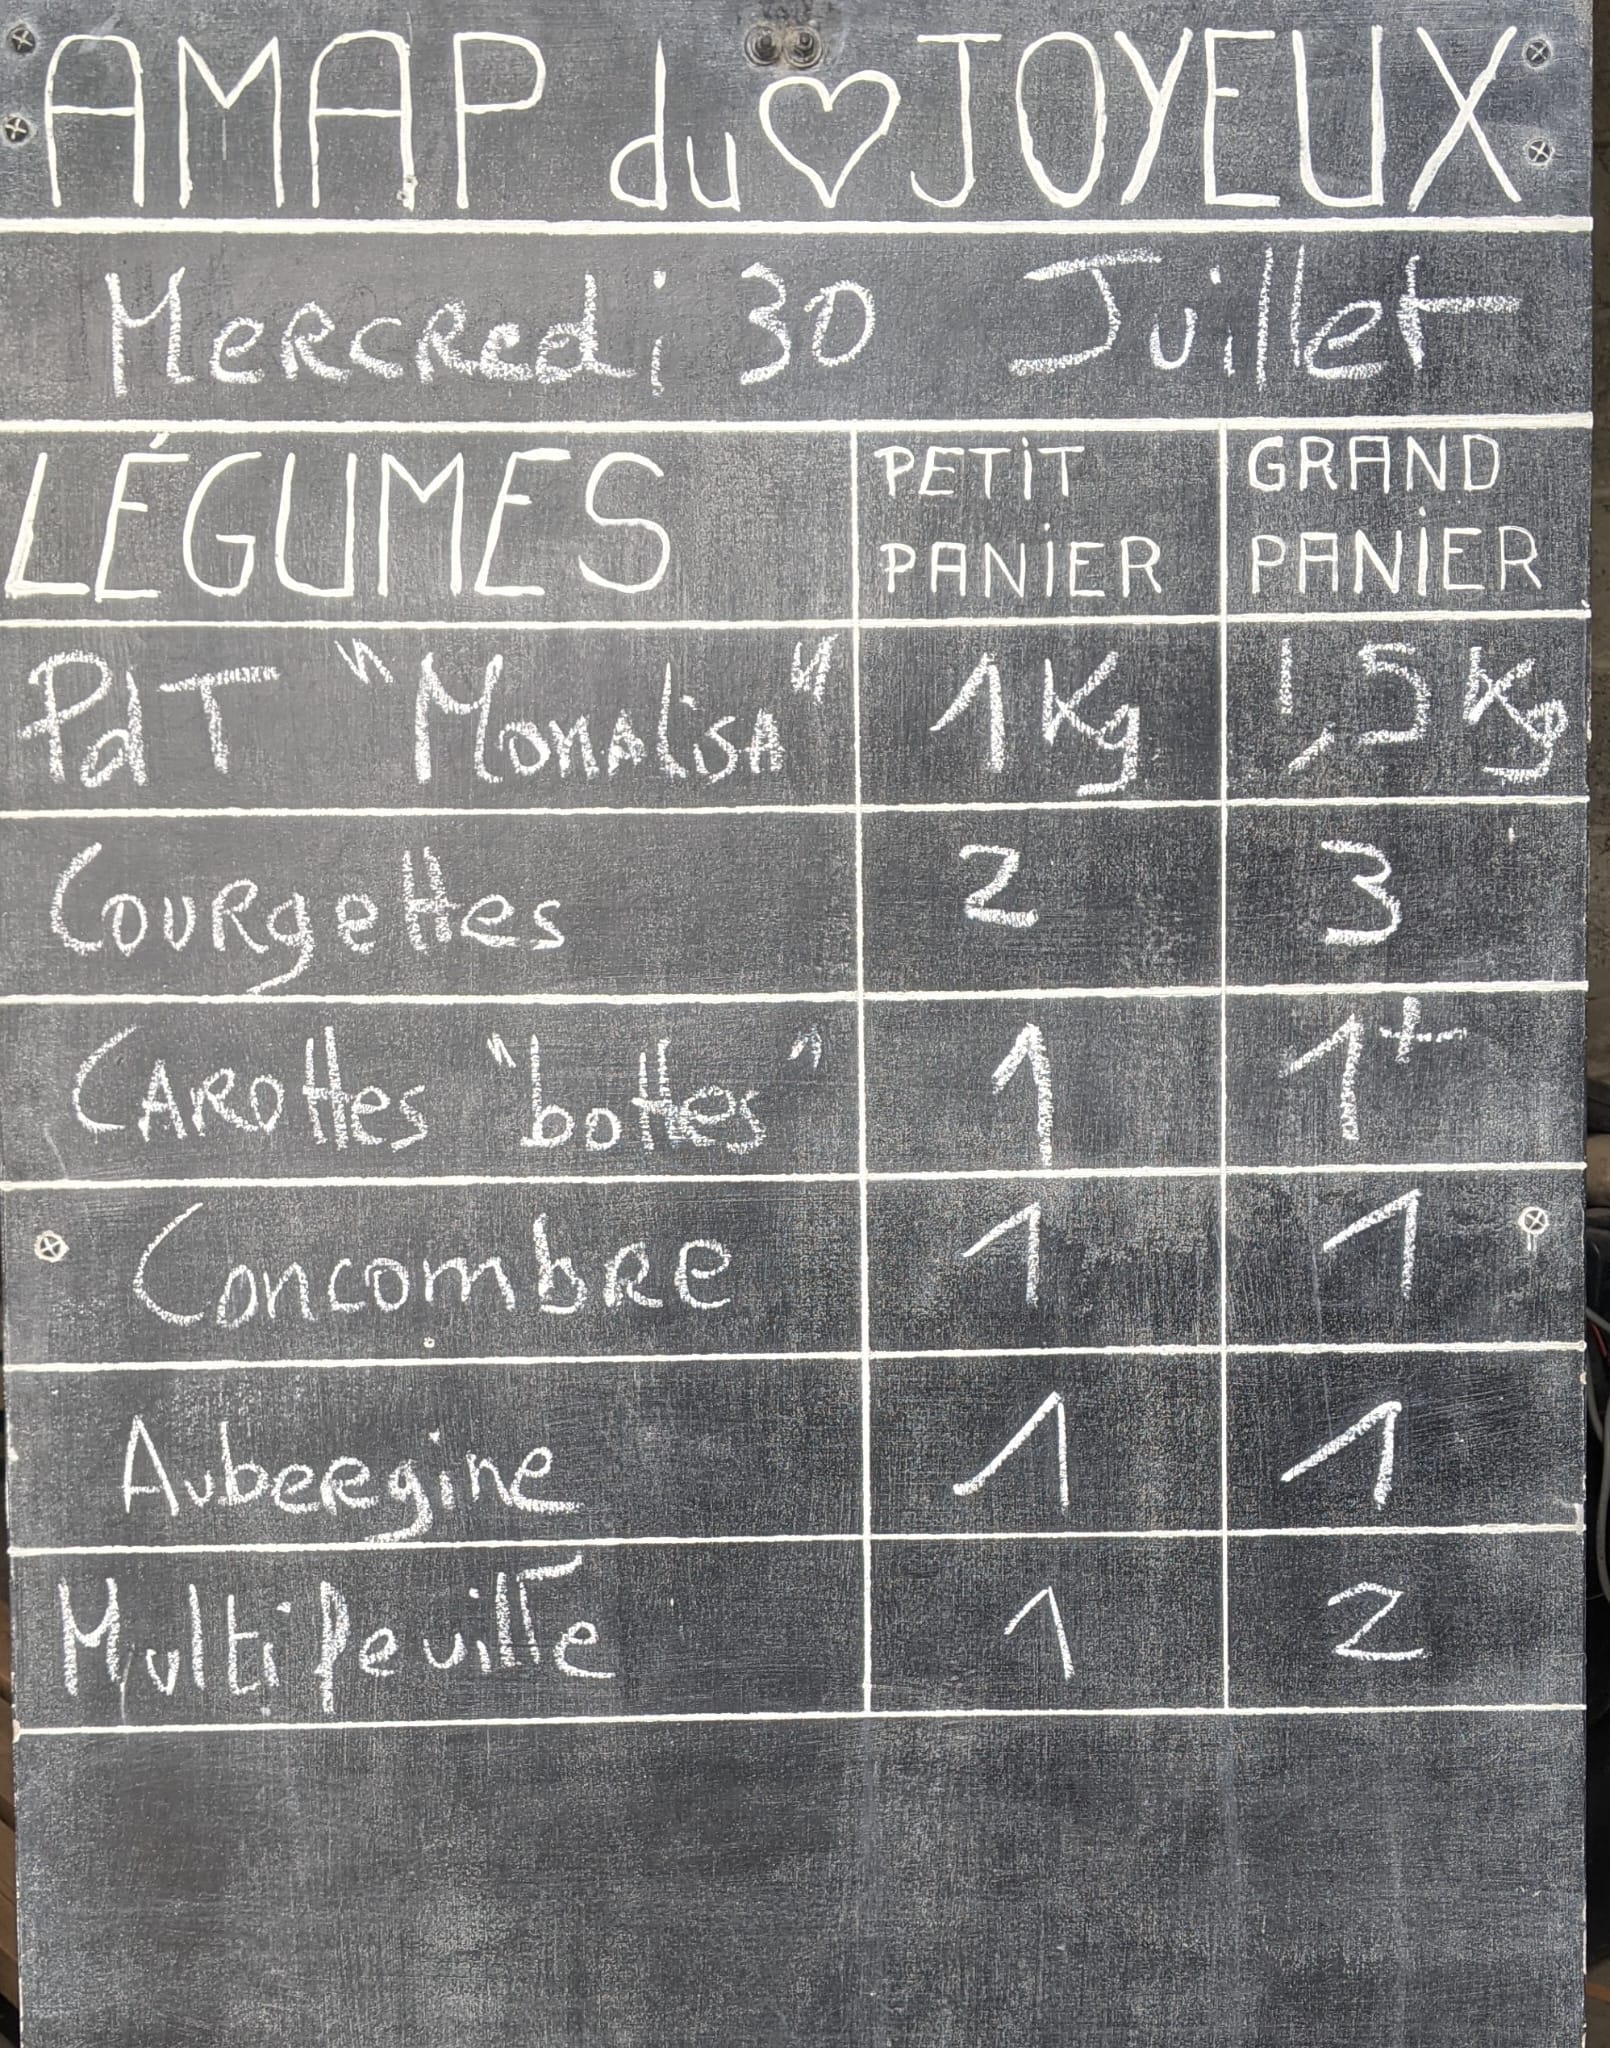 AMAP du ♡ JOYEUX
Mercredi 30 Juillet
LÉGUMES PETIT PANIER GRAND PANIER
PdT "Monalisa" 1 Kg 1,5 Kg
Courgettes 2 3
Carottes "bottes" 1 1+
Concombre 1 1
Aubergine 1 1
Multifeuille 1 2